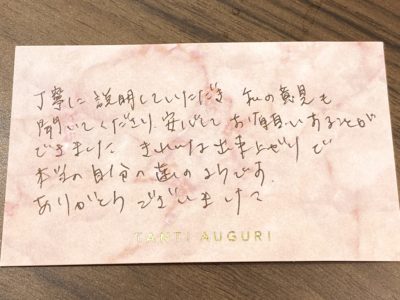 丁寧に説明していただき 私の意見も
聞いてくださり、安心して お願いすることが
できました きれいな出来上がりで
本当の自分の歯のようです。
ありがとうございました
TANTI AUGURI